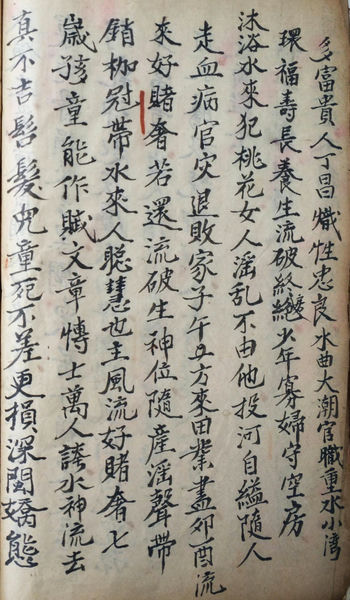 多富貴人丁昌熾性忠良水曲大潮官職重水小灣
環福壽長養生流破終絕少年寡婦守空房
沐浴水來犯桃花女人淫乱不由他投河自縊隨人
走血病官灾退敗家子午五方來田業盡卯酉流
來好賭奢若還流破生神位隨產淫聲帶
鎖枷冠帶水來人聡慧也主風流好賭奢七
嵗孩童能作賦文章愽士萬人誇水神流去
真不吉髫髮兒童死不差更損深閨嬌態